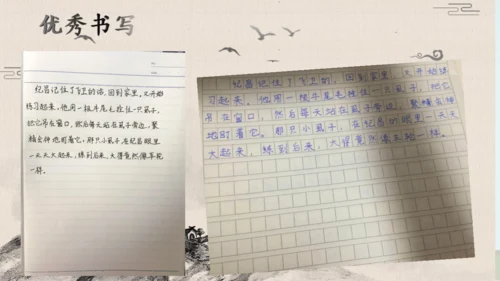 优秀书写
纪昌记住了飞卫的话,回到家里,又开始
练习起来。他用一根牛尾毛拴住一只虱子,
把它吊在窗口,然后每天站在虱子旁边,聚
精会神地盯着它。那只小虱子,在纪昌眼里
一天天大起来,练到后来,大得竟然像车轮
一样。
纪昌记住了飞卫的,回到家里,又开始练
习起来。他用一根牛尾毛拴住一只虱子,把它
吊在窗口,然后每天站在虱子旁边,聚精会神
地盯着它。那只小虱子,在纪昌的眼里一天天
大起来,练到后来,大得竟然像车轮一样。